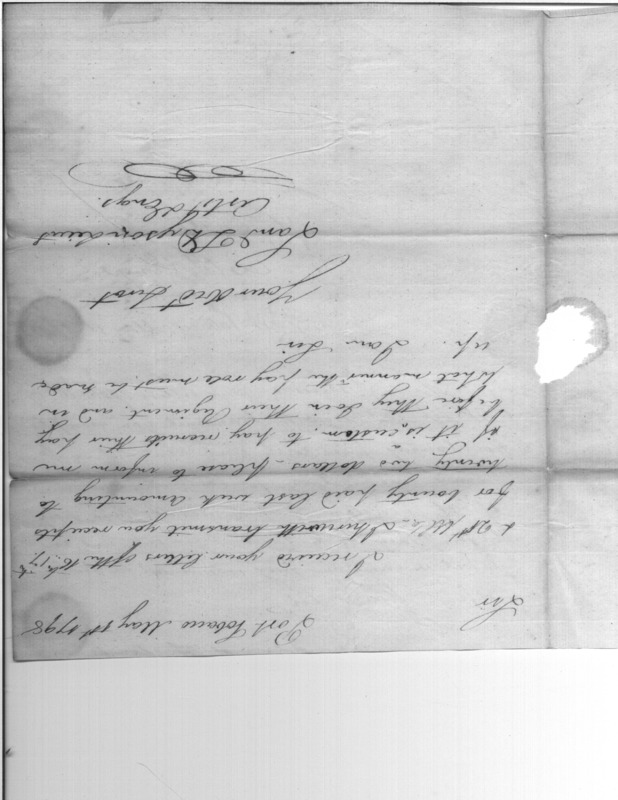 Port Tobacco May 1st 1798
Sir
I received your letters of the 16th, 17th
& 21st Ult. I herewith transmit you receipts
for bounty paid last week amounting to
twenty two dollars - please to inform me
if it is a custom to pay recruits their pay
before they Join their Regiment and in
What manner the pay role must be made
up. I am Sir
Your Obt Servt
Saml T Dyson Lieut
Arts & Engs.